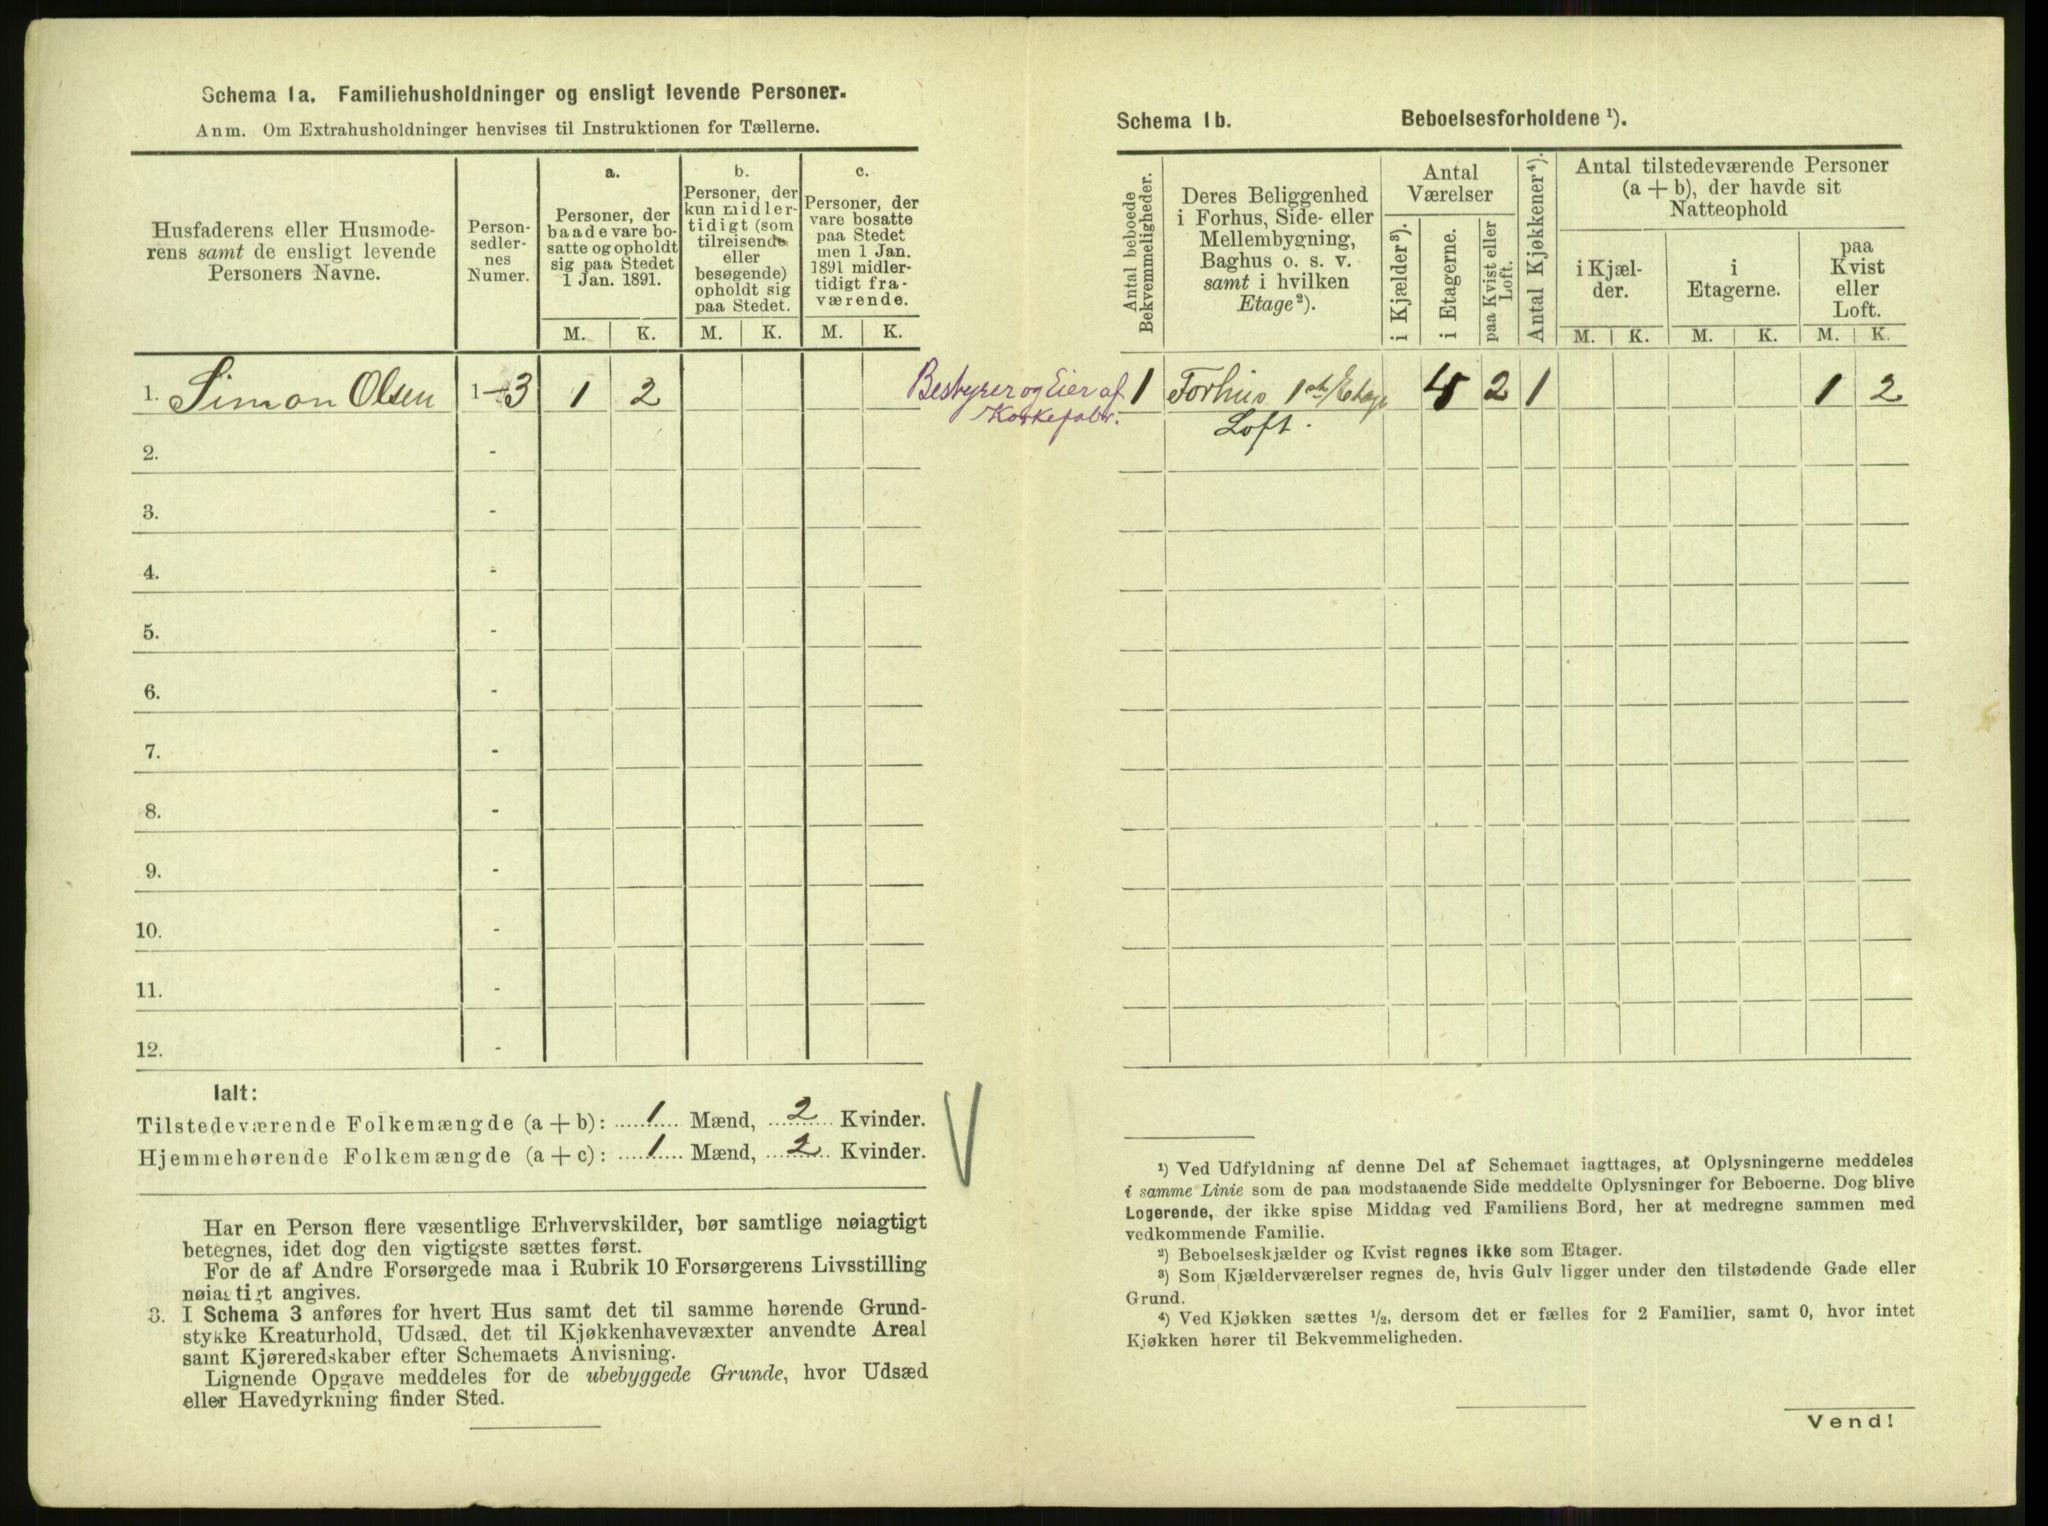 Schema 1a. Familiehusholdninger og ensligt levende Personer.
Anm. Om Extrahusholdninger henvises til Instruktionen for Tællerne.
Husfaderens eller Husmode-
rens samt de ensligt levende
Personers Navne.
Person-
sedler-
nes
Numer.
a.
Personer, der
baade vare bo-
satte og opholdt
sig paa Stedet
1 Jan. 1891.
M. K.
b.
Personer, der
kun midler-
tidigt (som
tilreisende
eller
besøgende)
opholdt sig
paa Stedet.
M. K.
c.
Personer, der
vare bosatte
paa Stedet
men 1 Jan.
1891 midler-
tidigt fra-
værende.
M. K.
1. Simon Olsen 1-3 1 2
2. -
3. -
4. -
5. -
6. -
7. -
8. -
9. -
10. -
11. -
12. -
Ialt:
Tilstedeværende Folkemængde (a + b): 1 Mænd, 2 Kvinder.
Hjemmehørende Folkemængde (a + c): 1 Mænd, 2 Kvinder.
Har en Person flere væsentlige Erhvervskilder, bør samtlige nøiagtigt
betegnes, idet dog den vigtigste sættes først.
For de af Andre Forsørgede maa i Rubrik 10 Forsørgerens Livsstilling
nøiagtigt angives.
3. I Schema 3 anføres for hvert Hus samt det til samme hørende Grund-
stykke Kreaturhold, Udsæd, det til Kjøkkenhavevæxter anvendte Areal
samt Kjøreredskaber efter Schemaets Anvisning.
Lignende Opgave meddeles for de ubebyggede Grunde, hvor Udsæd
eller Havedyrkning finder Sted.
Schema 1b. Beboelsesforholdene ¹).
Antal beboede
Bekvemmeligheder.
Deres Beliggenhed
i Forhus, Side- eller
Mellembygning,
Baghus o. s. v.
samt i hvilken
Etage ²).
Antal
Værelser
i Kjælder ³).
i Etagerne.
paa Kvist eller
Loft.
Antal Kjøkkener ⁴).
Antal tilstedeværende Personer
(a + b), der havde sit
Natteophold
i Kjæl-
der.
i
Etagerne.
paa
Kvist
eller
Loft.
M. K. M. K. M. K.
Bestyrer og Eier af
Korkefabr.
1 Forhus 1ste Etage 4 2 1 1 2
Loft.
¹) Ved Udfyldning af denne Del af Schemaet iagttages, at Oplysningerne meddeles
i samme Linie som de paa modstaaende Side meddelte Oplysninger for Beboerne. Dog blive
Logerende, der ikke spise Middag ved Familiens Bord, her at medregne sammen med
vedkommende Familie.
²) Beboelseskjælder og Kvist regnes ikke som Etager.
³) Som Kjælderværelser regnes de, hvis Gulv ligger under den tilstødende Gade eller
Grund.
⁴) Ved Kjøkken sættes ½, dersom det er fælles for 2 Familier, samt 0, hvor intet
Kjøkken hører til Bekvemmeligheden.
Vend!